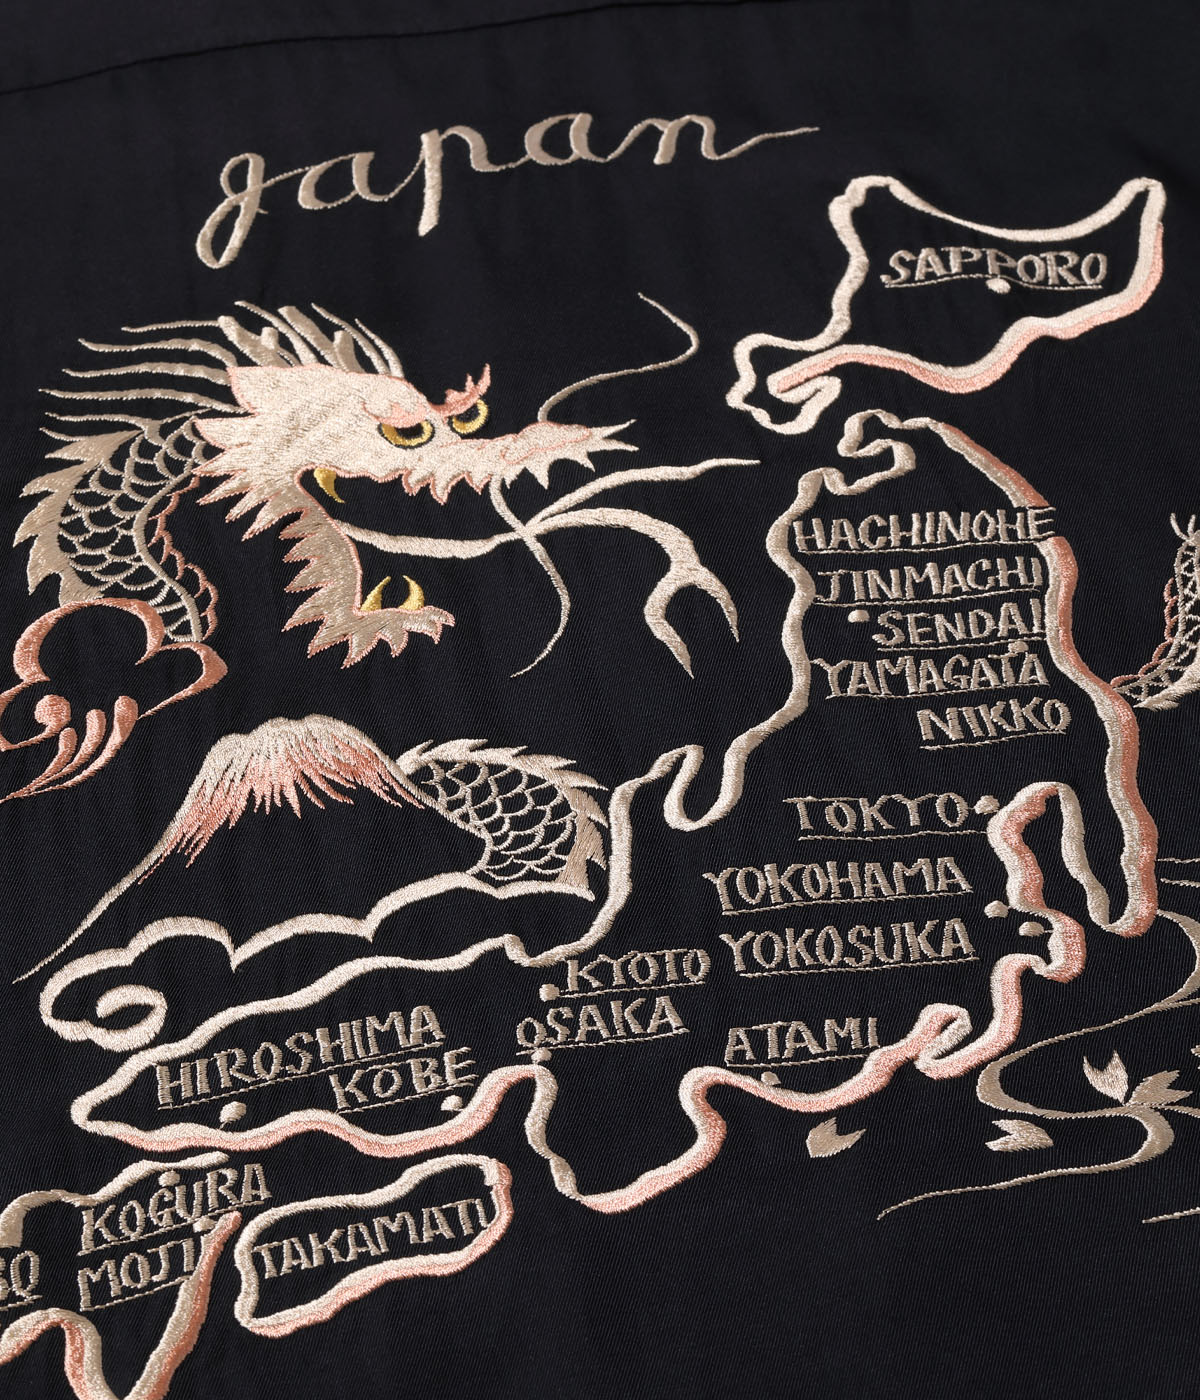 Japan
SAPPORO
HACHINOHE
JINMACHI
SENDAI
YAMAGATA
NIKKO
TOKYO
YOKOHAMA
YOKOSUKA
KYOTO
OSAKA
ATAMI
HIROSHIMA
KOBE
KOGURA
MOJI
TAKAMATI